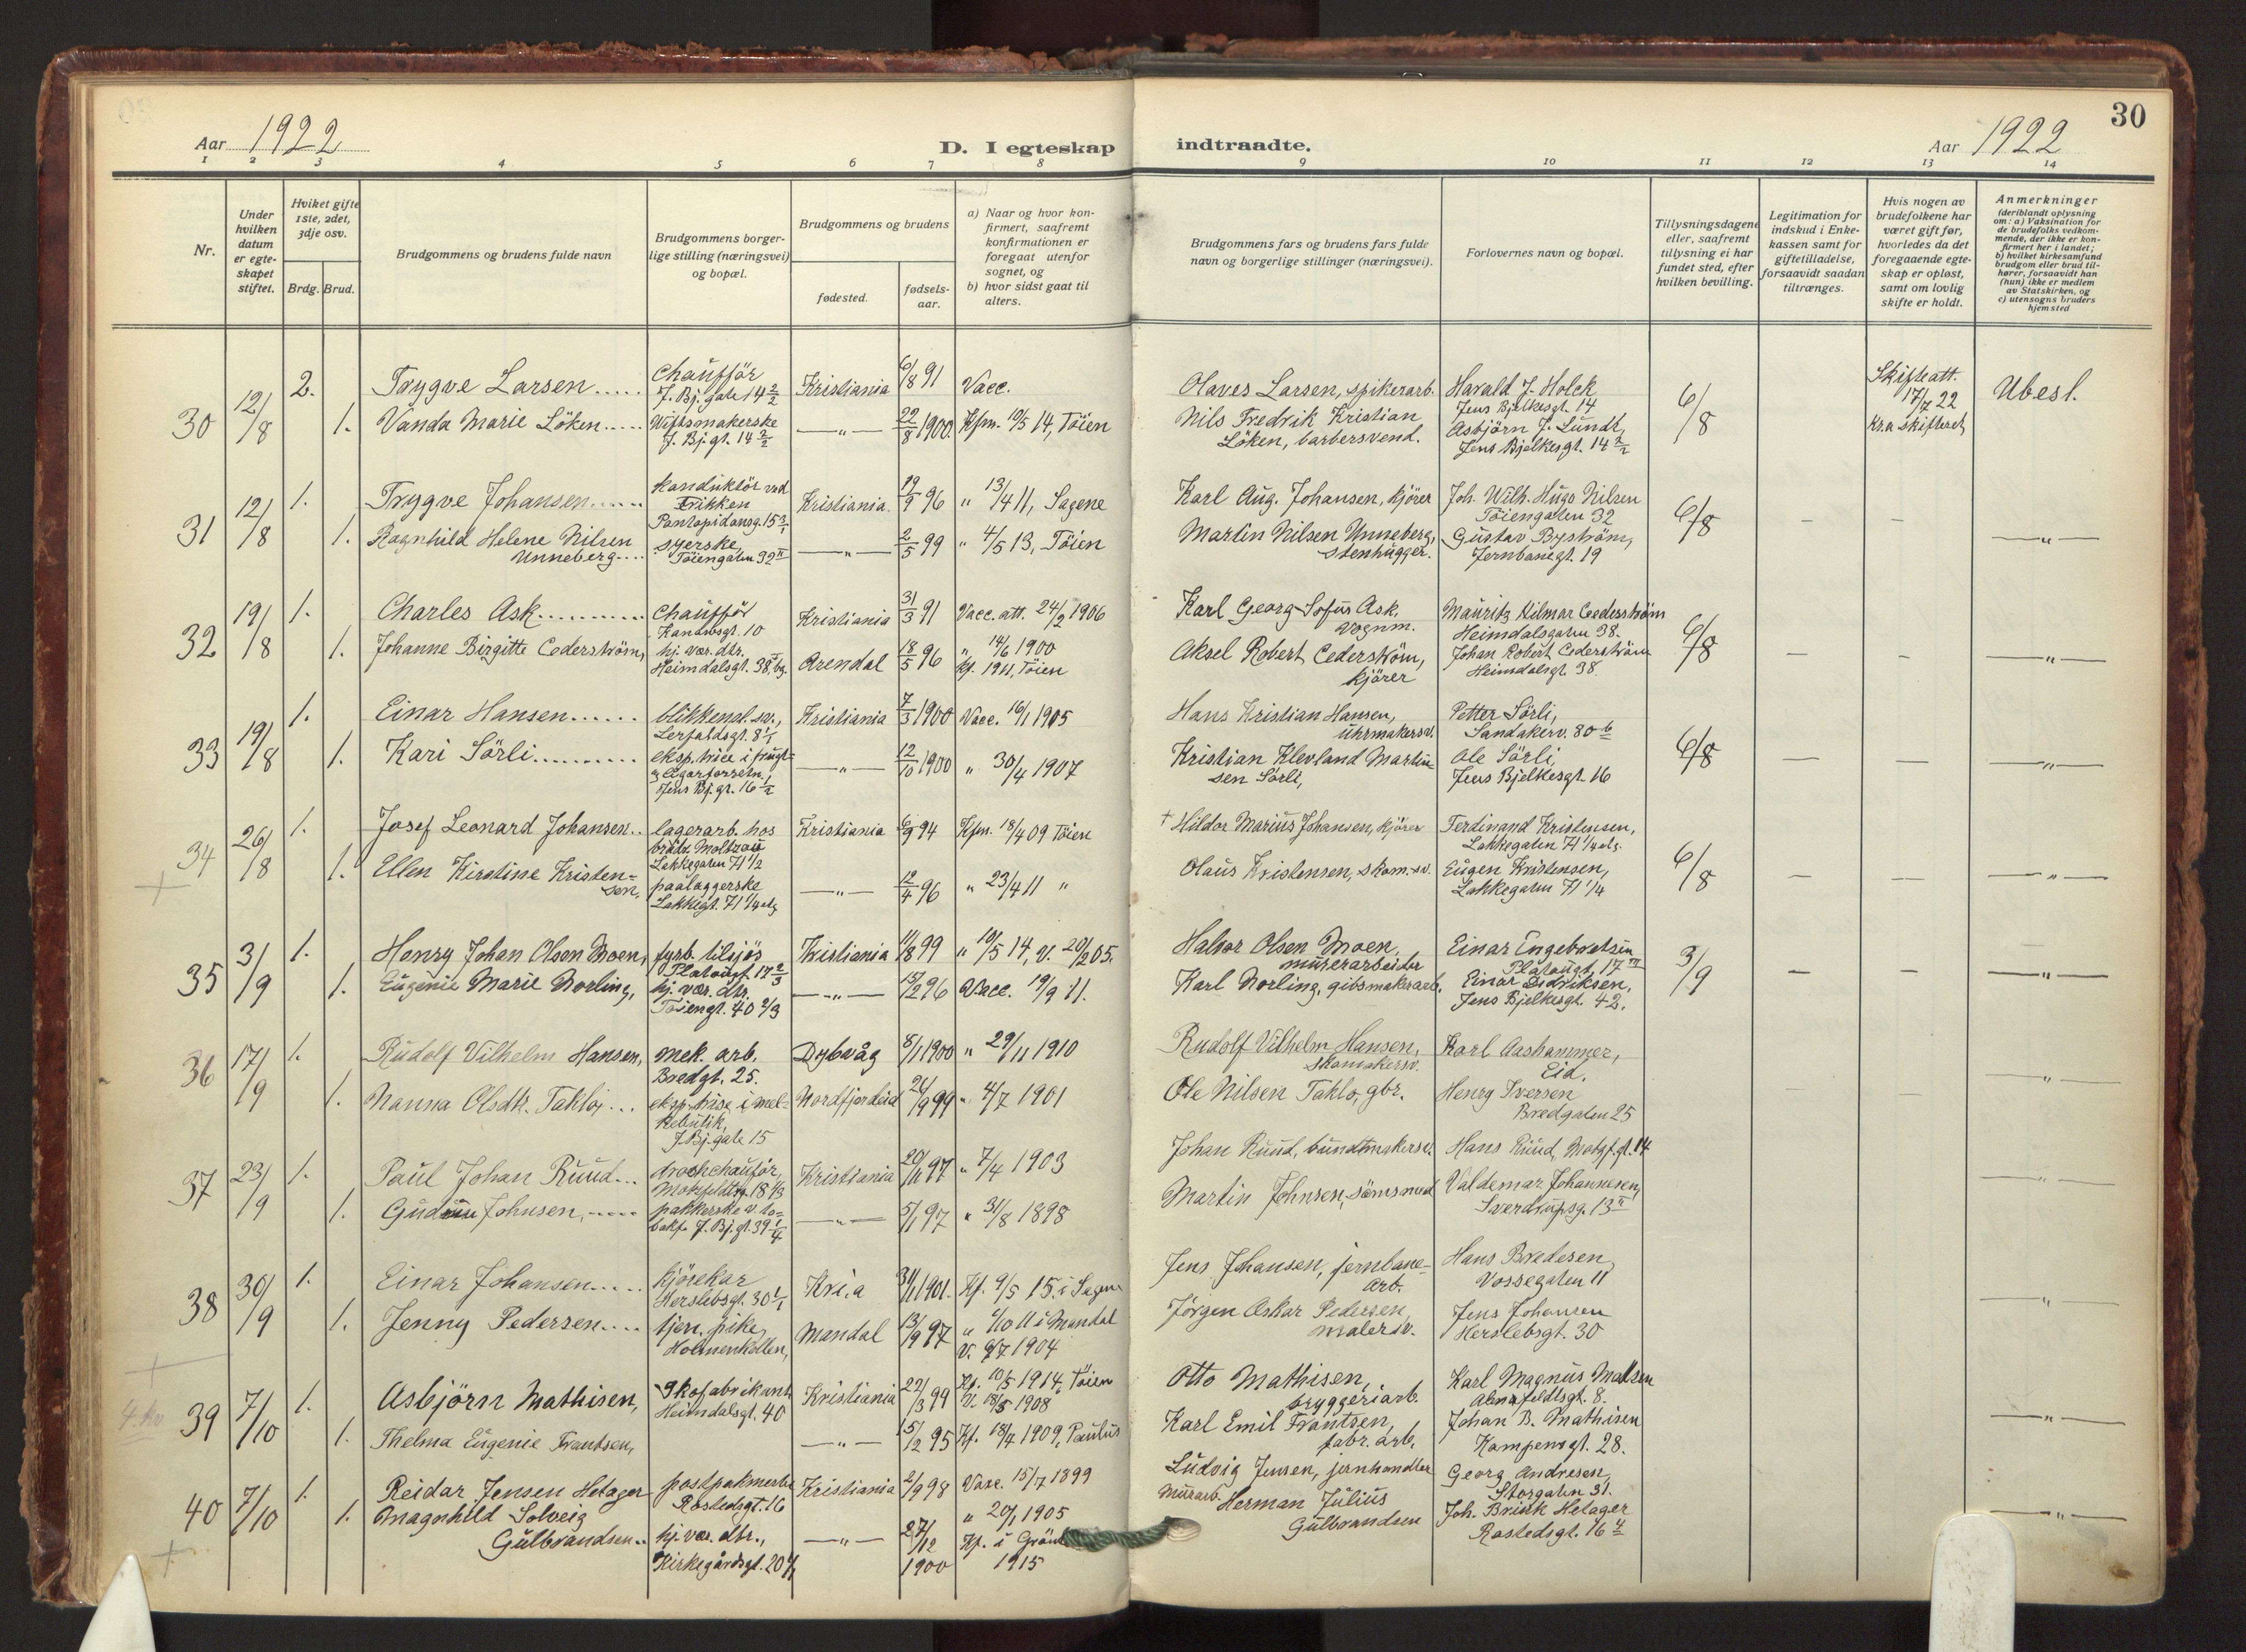 30
Aar 1922
D. I egteskap indtraadte.
Aar 1922
1 2 3 4 5 6 7 8 9 10 11 12 13 14
Nr.
Under hvilken datum er egteskapet stiftet.
Hviket gifte 1ste, 2det, 3dje osv.
Brdg. Brud.
Brudgommens og brudens fulde navn
Brudgommens borgerlige stilling (næringsvei) og bopæl.
Brudgommens og brudens
fødested.
fødselsaar.
a) Naar og hvor konfirmert, saafremt konfirmationen er foregaat utenfor sognet, og
b) hvor sidst gaat til alters.
Brudgommens fars og brudens fars fulde navn og borgerlige stillinger (næringsvei).
Forlovernes navn og bopæl.
Tillysningsdagene eller, saafremt tillysning ei har fundet sted, efter hvilken bevilling.
Legitimation for indskud i Enkekassen samt for giftetilladelse, forsaavidt saadan tiltrænges.
Hvis nogen av brudefolkene har været gift før, hvorledes da det foregaaende egteskap er opløst, samt om lovlig skifte er holdt.
Anmerkninger
(deriblandt oplysning om: a) Vaksination for de brudefolks vedkommende, der ikke er konfirmert her i landet; b) hvilket kirkesamfund brudgom eller brud tilhører, forsaavidt han (hun) ikke er medlem av Statskirken, og c) utensogns bruders hjemsted
30 12/8 2. Trygve Larsen..... Chaufför J. Bj. gate 14 2/2 Kristiania 6/8 91 Vacc. Olaves Larsen, spikerarb. Harald J. Holck Jens Bjelkesgt. 14 6/8 Skifteatt. 17/7 22 Kr.a skifteret Ubesl.
1. Vanda Marie Löken..... Viftsmakerske J. Bj. gt. 14 2/2 —"— 22/8 1900. Kfm. 10/5 14, Töien Nils Fredrik Kristian Löken, barbersvend. Asbjörn J. Lundt, Jens Bjelkesgt. 14 2/2
31 12/8 1. Trygve Johansen...... konduktör ved Trikken Pontopidansg. 15 3/1 Kristiania 19/9 96 " 13/4 11, Sagene Karl Aug. Johansen, kjörer Joh. Wilh. Hugo Nilsen Töiengaten 32 6/8 — — —"—
1. Ragnhild Helene Nilsen Unneberg.... syerske, Töiengaten 32 II —"— 2/5 99 " 4/5 13, Töien Martin Nilsen Unneberg, stenhugger. Gustav Byström, Jernbanegt. 19
32 19/8 1. Charles Ask.......... Chauffør Kanalsgt. 10 Kristiania 31/3 91 Vacc. att. 24/2 1906 Karl Georg Sofus Ask. Vognm. Mauritz Hilmar Cederström Heimdalsgaten 38. 6/8 — — —"—
1. Johanne Birgitte Cederström, hj. vær. dtr. Heimdalsgt. 38, bg. Arendal 18/5 96 " 14/6 1900 kf. 1911, Töien Aksel Robert Cederström, kjörer Johan Robert Cederström Heimdalsgt. 38.
33 19/8 1. Einar Hansen...... blikkensl. sv., Lerfaldsgt. 8 1/1 Kristiania 7/3 1900 Vacc. 16/1 1905 Hans Kristian Hansen, uhrmakersv. Petter Sörli, Sandakerv. 80 b 6/8 — — —"—
1. Kari Sörli.......... eksp. trice i frugt- & cigarforretn., Jens Bj. gt. 16 1/2 —"— 12/10 1900 " 30/4 1907 Kristian Klevland Martinsen Sörli, Ole Sörli, Jens Bjelkesgt. 16
34 26/8 1. Josef Leonard Johansen.. lagerarb. hos brödr. Moltzau Lakkegaten 71 1/2 Kristiania 6/9 94 Kfm. 18/4 09 Töien † Hildor Marius Johansen, kjörer Ferdinand Kristensen, Lakkegaten 71 1/4 etg. 6/8 — — —"—
1. Ellen Kirstine Kristensen, paalæggerske Lakkegt. 71 1/4 etg —"— 12/4 96 " 23/4 11 " Olaus Kristensen, skom.sv. Eugen Kristensen, Lakkegaten 71 1/4
35 3/9 1. Henry Johan Olsen Moen, fyrb. tilsjös Platousgt. 17 2/3 Kristiania 11/8 99 " 10/5 14, v. 20/2 05. Halvor Olsen Moen, mürerarbeider Einar Engebretsen Platougt. 17 III 3/9 — — —"—
1. Eugenie Marie Norling, hj. vær. dtr. Töiengt. 40 2/3 —"— 15/2 96 Vacc. 19/9 11. Karl Norling, gibsmakerarb. Einar Didriksen, Jens Bjelkesgt. 42.
36 17/9 1. Rudolf Vilhelm Hansen, mek. arb. Bredgt. 25. Dybvåg 5/1 1900 " 29/11 1910 Rudolf Vilhelm Hansen, skomakersv. Karl Aashammer, Eid. —"—
1. Nanna Olsdtr. Taklo, ... eksp. trise i melkebutik, J. Bj. gate 15 Nordfjordeid 24/9 99 " 4/7 1901 Ole Nilsen Taklo, gbr. Henry Iversen Bredgaten 25
37 23/9 1. Paul Johan Ruud... droschchauför, Motzfeldtsg. 18 1/3 Kristiania 20/11 97 " 7/4 1903 Johan Ruud, buntmakersv. Hans Ruud, Motzf. gt. 14 —"—
1. Gudrun Johnsen, ..... pakkerske v. tobakf. J. Bj. gt. 39 1/4 —"— 5/1 97 " 31/8 1898 Martin Johnsen, sömsmed Valdemar Johannesen, Sverdrupsg. 13 II
38 30/9 1. Einar Johansen..... kjörekar Herslebsgt. 30 1/1 Kri.a 31/1 1901. Kf. 9/5 15. i Sagene Jens Johansen, jernbanearb. Hans Bredesen, Vossegaten 11 —"—
1. Jenny Pedersen.... tjen. pike, Holmenkollen, Mandal 13/9 97 " 1/10 11 i Mandal V. 9/7 1904 Jörgen Oskar Pedersen, malersv. Jens Johansen Herslebsgt. 30
39 7/10 1. Asbjörn Mathisen, Skofabrikant Heimdalsgt. 40 Kristiania 22/3 99 Kf. 10/5 1914, Töien V. 18/5 1908 Otto Mathisen, bryggeriarb. Karl Magnus Madsen Almafeldtsgt. 8. —"—
1. Thelma Eugenie Frantsen, —"— 15/2 95 Kf. 18/4 1909, Paulus Karl Emil Frantsen, fabr. arb. Johan B. Mathisen Kampensgt. 28.
40 7/10 1. Reidar Jensen Hetager postpakmester Rostedsgt. 16 Kristiania 2/9 98 Vacc. 15/7 1899 Ludvig Jensen, jernhandler Georg Andresen, Storgaten 31. —"—
1. Magnhild Solveig Gulbrandsen.. hj. vær. dtr., Kirkegårdsgt. 20 —"— 27/12 1900 " 20/1 1905 Kf. i 1915 Murarb. Herman Julius Gulbrandsen Joh. Brink Hetager Rostedsgt. 16